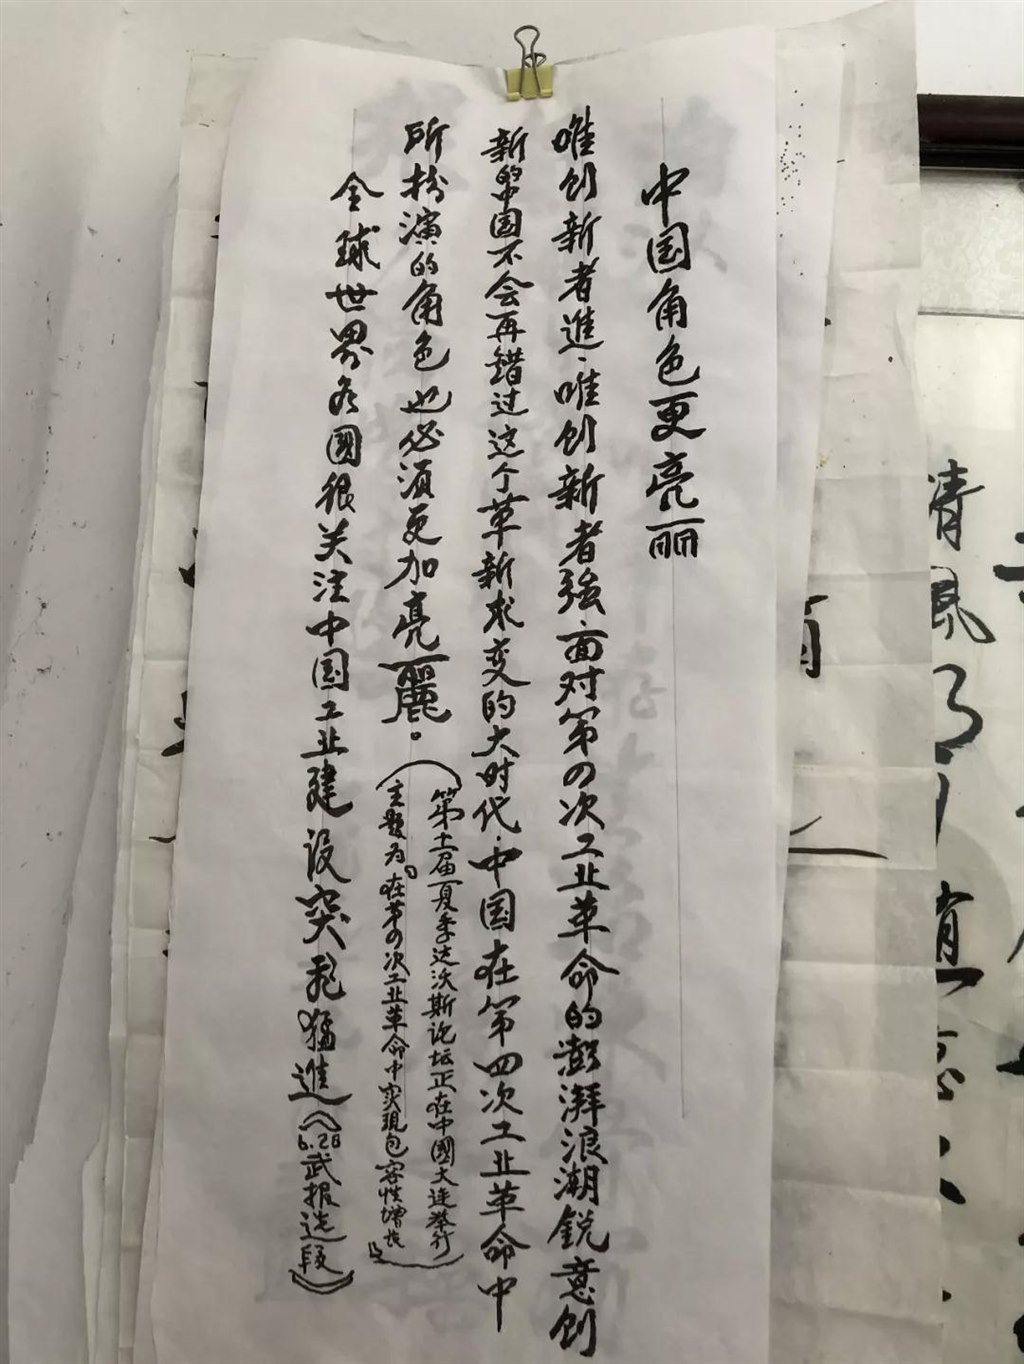 中国角色更亮丽
唯创新者進·唯创新者強·面对第の次工业革命的澎湃浪潮锐意创
新的中国不会再错过这个革新求变的大时代·中国在第四次工业革命中
所扮演的角色也必须更加亮麗。(第十一届夏季达沃斯论坛正在中國大连举行
主题为:在第の次工业革命中实現包容性增长)
全球世界各國很关注中国工业建设突飛猛進(6.28武报选段)
清風